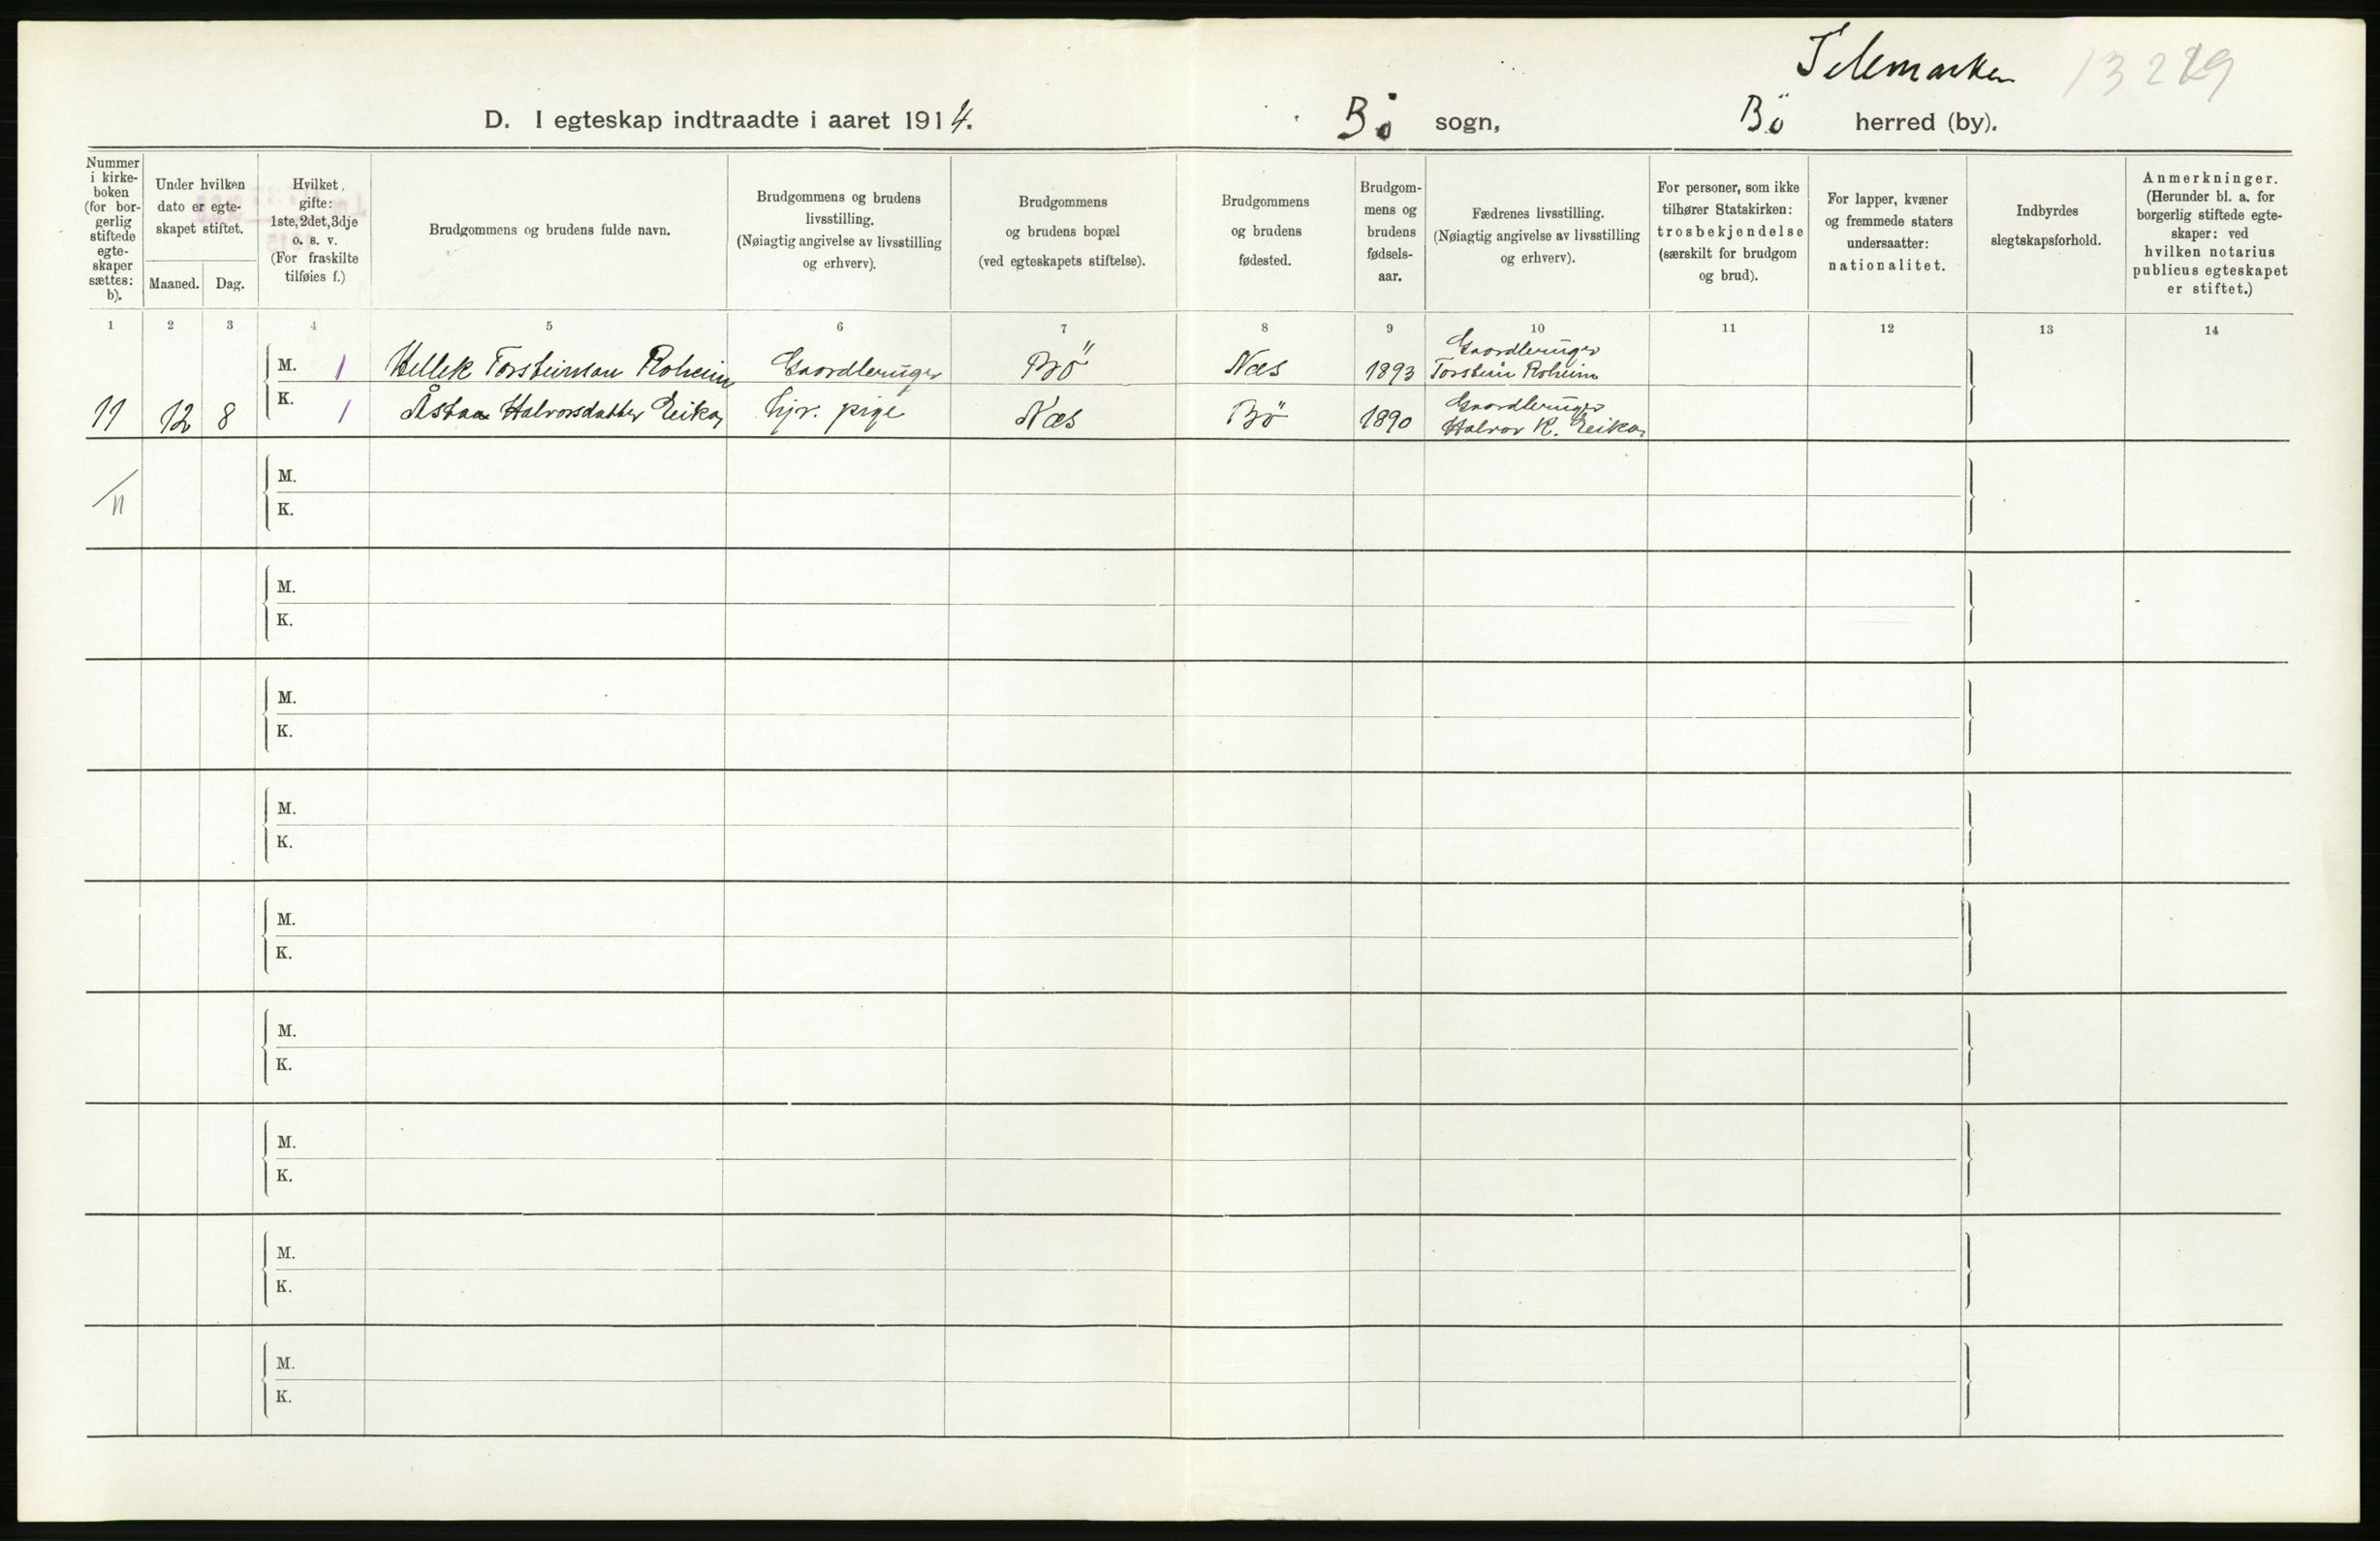 Telemarken
13229
D. I egteskap indtraadte i aaret 1914. Bö sogn, Bö herred (by).
Nummer i kirke-boken (for bor-gerlig stiftede egte-skaper sættes: b).
Under hvilken dato er egte-skapet stiftet.
Maaned. Dag.
Hvilket gifte: 1ste, 2det, 3dje o. s. v. (For fraskilte tilføies f.)
Brudgommens og brudens fulde navn.
Brudgommens og brudens livsstilling. (Nøiagtig angivelse av livsstilling og erhverv).
Brudgommens og brudens bopæl (ved egteskapets stiftelse).
Brudgommens og brudens fødested.
Brudgom-mens og brudens fødsels-aar.
Fædrenes livsstilling. (Nøiagtig angivelse av livsstilling og erhverv).
For personer, som ikke tilhører Statskirken: trosbekjendelse (særskilt for brudgom og brud).
For lapper, kvæner og fremmede staters undersaatter: nationalitet.
Indbyrdes slegtskapsforhold.
Anmerkninger. (Herunder bl. a. for borgerlig stiftede egte-skaper: ved hvilken notarius publicus egteskapet er stiftet.)
1 2 3 4 5 6 7 8 9 10 11 12 13 14
Gaordbruger
M. 1 Hellek Torsteinson Roheim Gaordbruger Bö Næs 1893 Torstein Roheim
Gaordbruger
11 12 8 K. 1 Åstaa Halvorsdatter Eika, hjv. pige Næs Bö 1890 Halvor K. Eika,
M.
11
K.
M.
K.
M.
K.
M.
K.
M.
K.
M.
K.
M.
K.
M.
K.
M.
K.